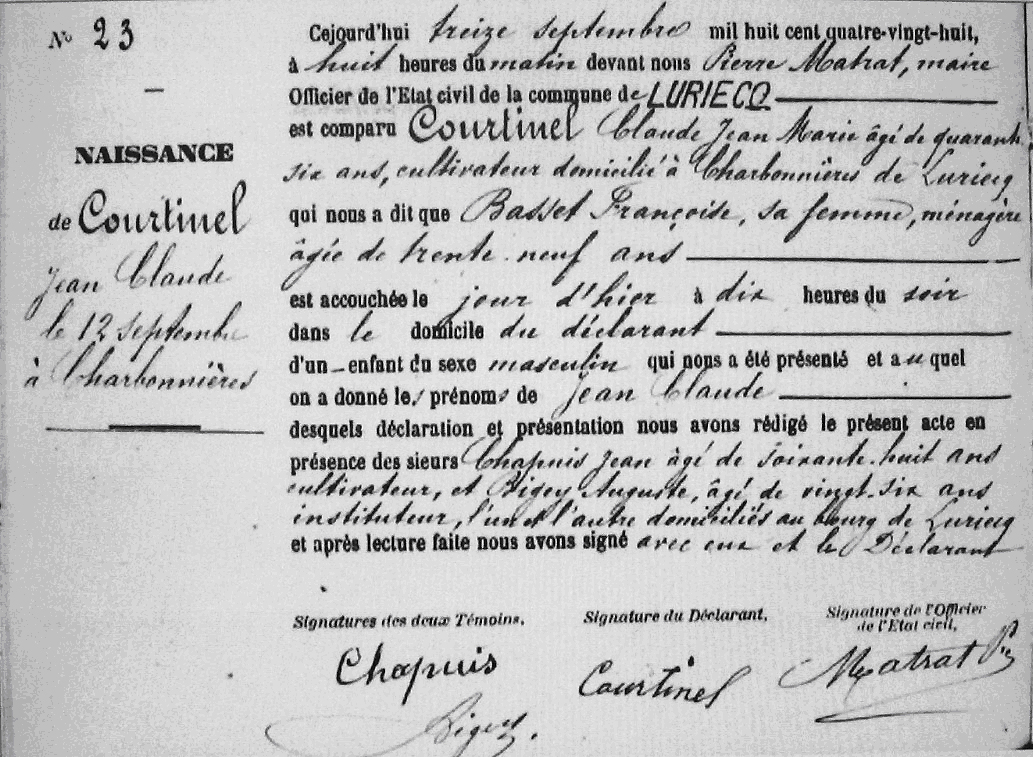 N° 23
NAISSANCE
de Courtinel
Jean Claude
le 12 septembre
à Charbonnières
Cejourd'hui treize septembre mil huit cent quatre-vingt-huit,
à huit heures du matin devant nous Pierre Matrat, maire
Officier de l'Etat civil de la commune de LURIECQ
est comparu Courtinel Claude Jean Marie âgé de quarante
six ans, cultivateur domicilié à Charbonnières de Luriecq
qui nous a dit que Basset Françoise, sa femme, ménagère
âgée de trente-neuf ans
est accouchée le jour d'hier à dix heures du soir
dans le domicile du déclarant
d'un enfant du sexe masculin qui nous a été présenté et auquel
on a donné les prénoms de Jean Claude
desquels déclaration et présentation nous avons rédigé le présent acte en
présence des sieurs Chapuis Jean âgé de soixante-huit ans
cultivateur, et Bigey Auguste, âgé de vingt-six ans
instituteur, l'un et l'autre domiciliés au bourg de Luriecq
et après lecture faite nous avons signé avec eux et le Déclarant
Signatures des deux Témoins,
Signature du Déclarant,
Signature de l'Officier
de l'Etat civil,
Chapuis
Courtinel
Matrat Pre
Bigey